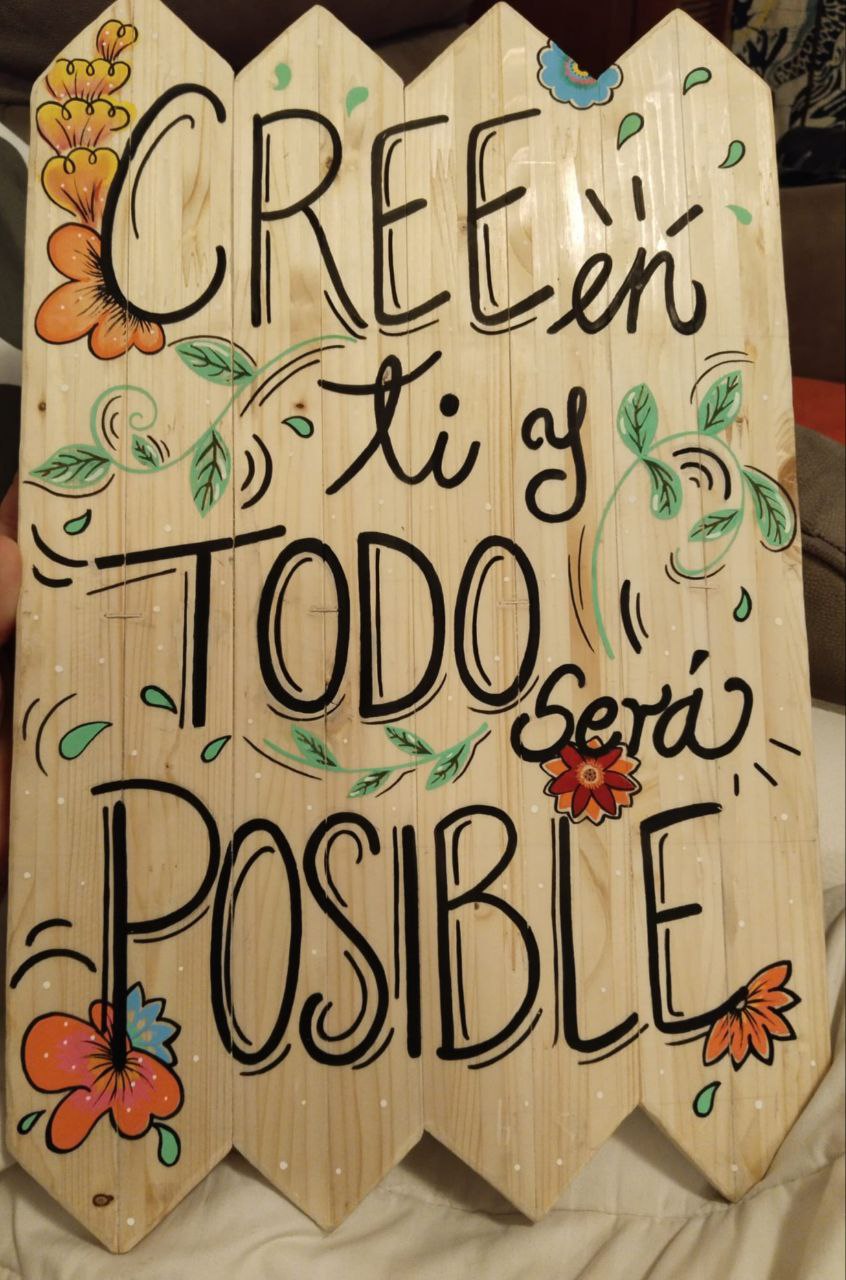 CREE en
ti y
TODO será
POSIBLE